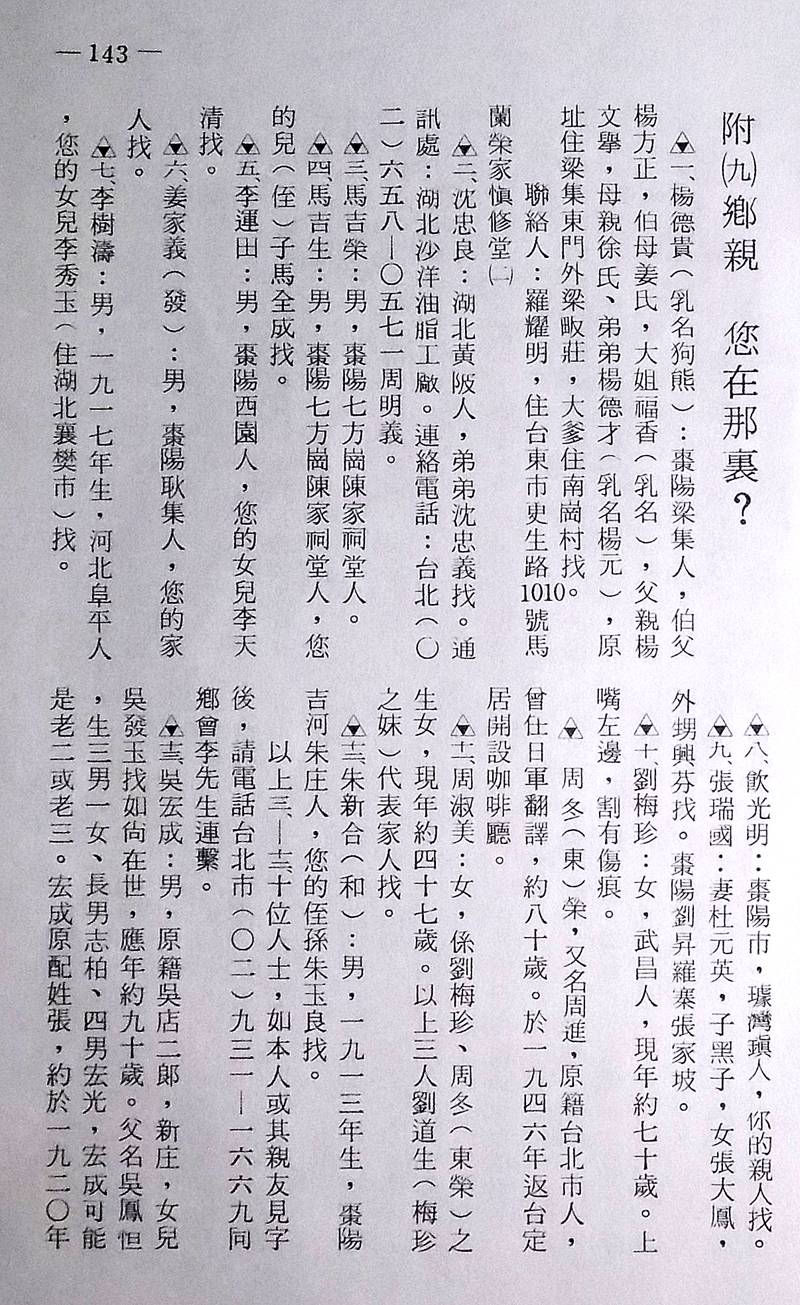 — 143 —
附㈨鄉親　您在那裏？
一、楊德貴（乳名狗熊）：棗陽梁集人，伯父
楊方正，伯母姜氏，大姐福香（乳名），父親楊
文舉，母親徐氏、弟弟楊德才（乳名楊元），原
址住梁集東門外梁畈莊，大爹住南崗村找。
聯絡人：羅耀明，住台東市更生路1010號馬
蘭榮家慎修堂㈡
二、沈忠良：湖北黃陂人，弟弟沈忠義找。通
訊處：湖北沙洋油脂工廠。連絡電話：台北（〇
二）六五八—〇五七一周明義。
三、馬吉榮：男，棗陽七方崗陳家祠堂人。
四、馬吉生：男，棗陽七方崗陳家祠堂人，您
的兒（侄）子馬全成找。
五、李運田：男，棗陽西園人，您的女兒李天
清找。
六、姜家義（發）：男，棗陽耿集人，您的家
人找。
七、李樹濤：男，一九一七年生，河北阜平人
，您的女兒李秀玉（住湖北襄樊市）找。
八、飲光明：棗陽市，璩灣瑱人，你的親人找。
九、張瑞國：妻杜元英，子黑子，女張大鳳，
外甥興、芬找。棗陽劉昇羅寨張家坡。
十、劉梅珍：女，武昌人，現年約七十歲。上
嘴左邊，割有傷痕。
周冬（東）榮，又名周進，原籍台北市人，
曾仕日軍翻譯，約八十歲。於一九四六年返台定
居開設咖啡廳。
十一、周淑美：女，係劉梅珍、周冬（東榮）之
生女，現年約四十七歲。以上三人劉道生（梅珍
之妹）代表家人找。
十二、朱新合（和）：男，一九一三年生，棗陽
吉河朱庄人，您的侄孫朱玉良找。
以上三、—十二、十位人士，如本人或其親友見字
後，請電話台北市（〇二）九三一—一六六九同
鄉會李先生連繫。
十三、吳宏成：男，原籍吳店二郎，新庄，女兒
吳發玉找如尙在世，應年約九十歲。父名吳鳳恒
，生三男一女、長男志柏、四男宏光，宏成可能
是老二或老三。宏成原配姓張，約於一九二〇年